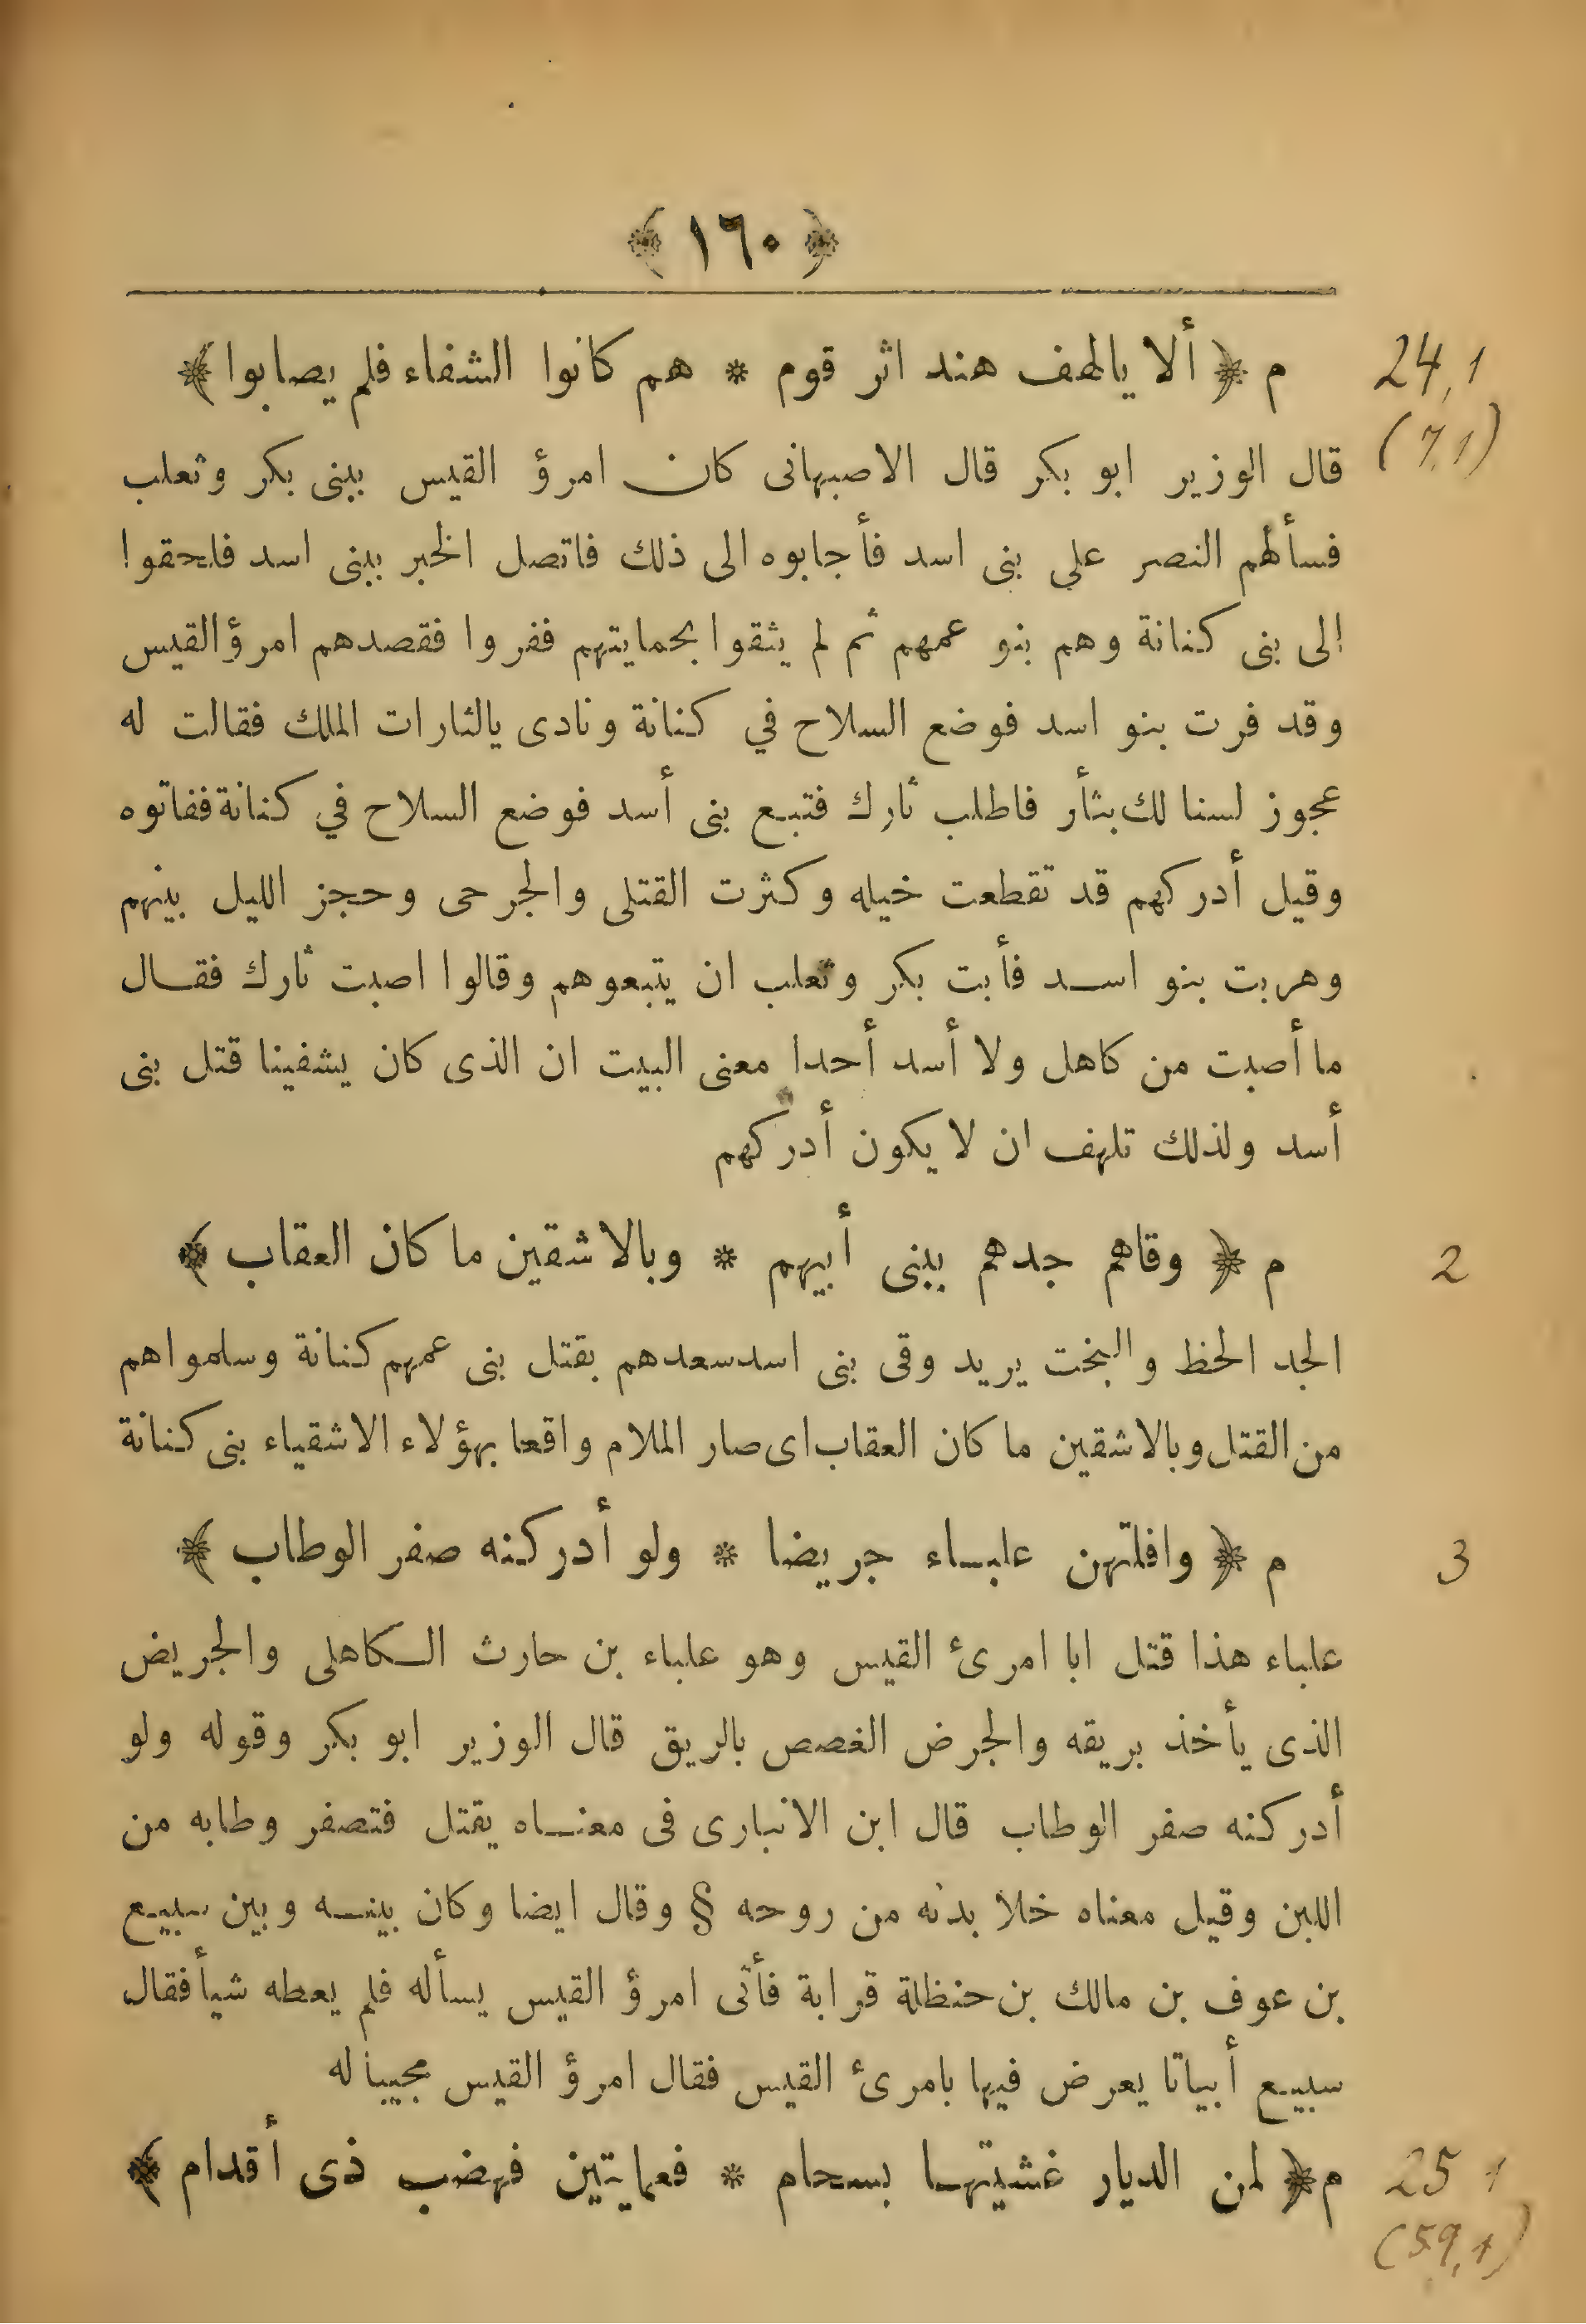 ﴿ ١٦٠ ﴾
م ﴿ ألا يالهف هند اثر قوم * هم كانوا الشفاء فلم يصابوا ﴾
24,1
(7,1)
قال الوزير ابو بكر قال الاصبهانى كان امرؤ القيس ببنى بكر وثعلب
فسألهم النصر على بنى اسد فأجابوه الى ذلك فاتصل الخبر ببنى اسد فلحقوا
إلى بنى كنانة وهم بنو عمهم ثم لم يثقوا بحمايتهم ففروا فقصدهم امرؤ القيس
وقد فرت بنو اسد فوضع السلاح في كنانة ونادى يالثارات الملك فقالت له
عجوز لسنا لك بثأر فاطلب ثارك فتبع بنى أسد فوضع السلاح في كنانة ففاتوه
وقيل أدركهم قد تقطعت خيله وكثرت القتلى والجرحى وحجز الليل بينهم
وهربت بنو اسد فأبت بكر وثعلب ان يتبعوهم وقالوا اصبت ثارك فقال
ما أصبت من كاهل ولا أسد أحدا معنى البيت ان الذى كان يشفينا قتل بنى
أسد ولذلك تلهف ان لا يكون أدركهم
م ﴿ وقاهم جدهم ببنى أبيهم * وبالاشقين ما كان العقاب ﴾
2
الجد الحظ والبخت يريد وقى بنى اسد سعدهم بقتل بنى عمهم كنانة وسلموا هم
من القتل وبالاشقين ما كان العقاب اى صار الملام واقعا بهؤلاء الاشقياء بنى كنانة
م ﴿ وافلتهن علباء جريضا * ولو أدركنه صفر الوطاب ﴾
3
علباء هذا قتل ابا امرئ القيس وهو علباء بن حارث الكاهلى والجريض
الذى يأخذ بريقه والجرض الغصص بالريق قال الوزير ابو بكر وقوله ولو
أدركنه صفر الوطاب قال ابن الانبارى فى معناه يقتل فتصفر وطابه من
اللبن وقيل معناه خلا بدنه من روحه § وقال ايضا وكان بينه وبين سبيع
بن عوف بن مالك بن حنظلة قرابة فأتى امرؤ القيس يسأله فلم يعطه شيأ فقال
سبيع أبياتا يعرض فيها بامرئ القيس فقال امرؤ القيس مجيبا له
م ﴿ لمن الديار غشيتها بسحام * فعمايتين فهضب ذى أقدام ﴾
25 1
(59,1)